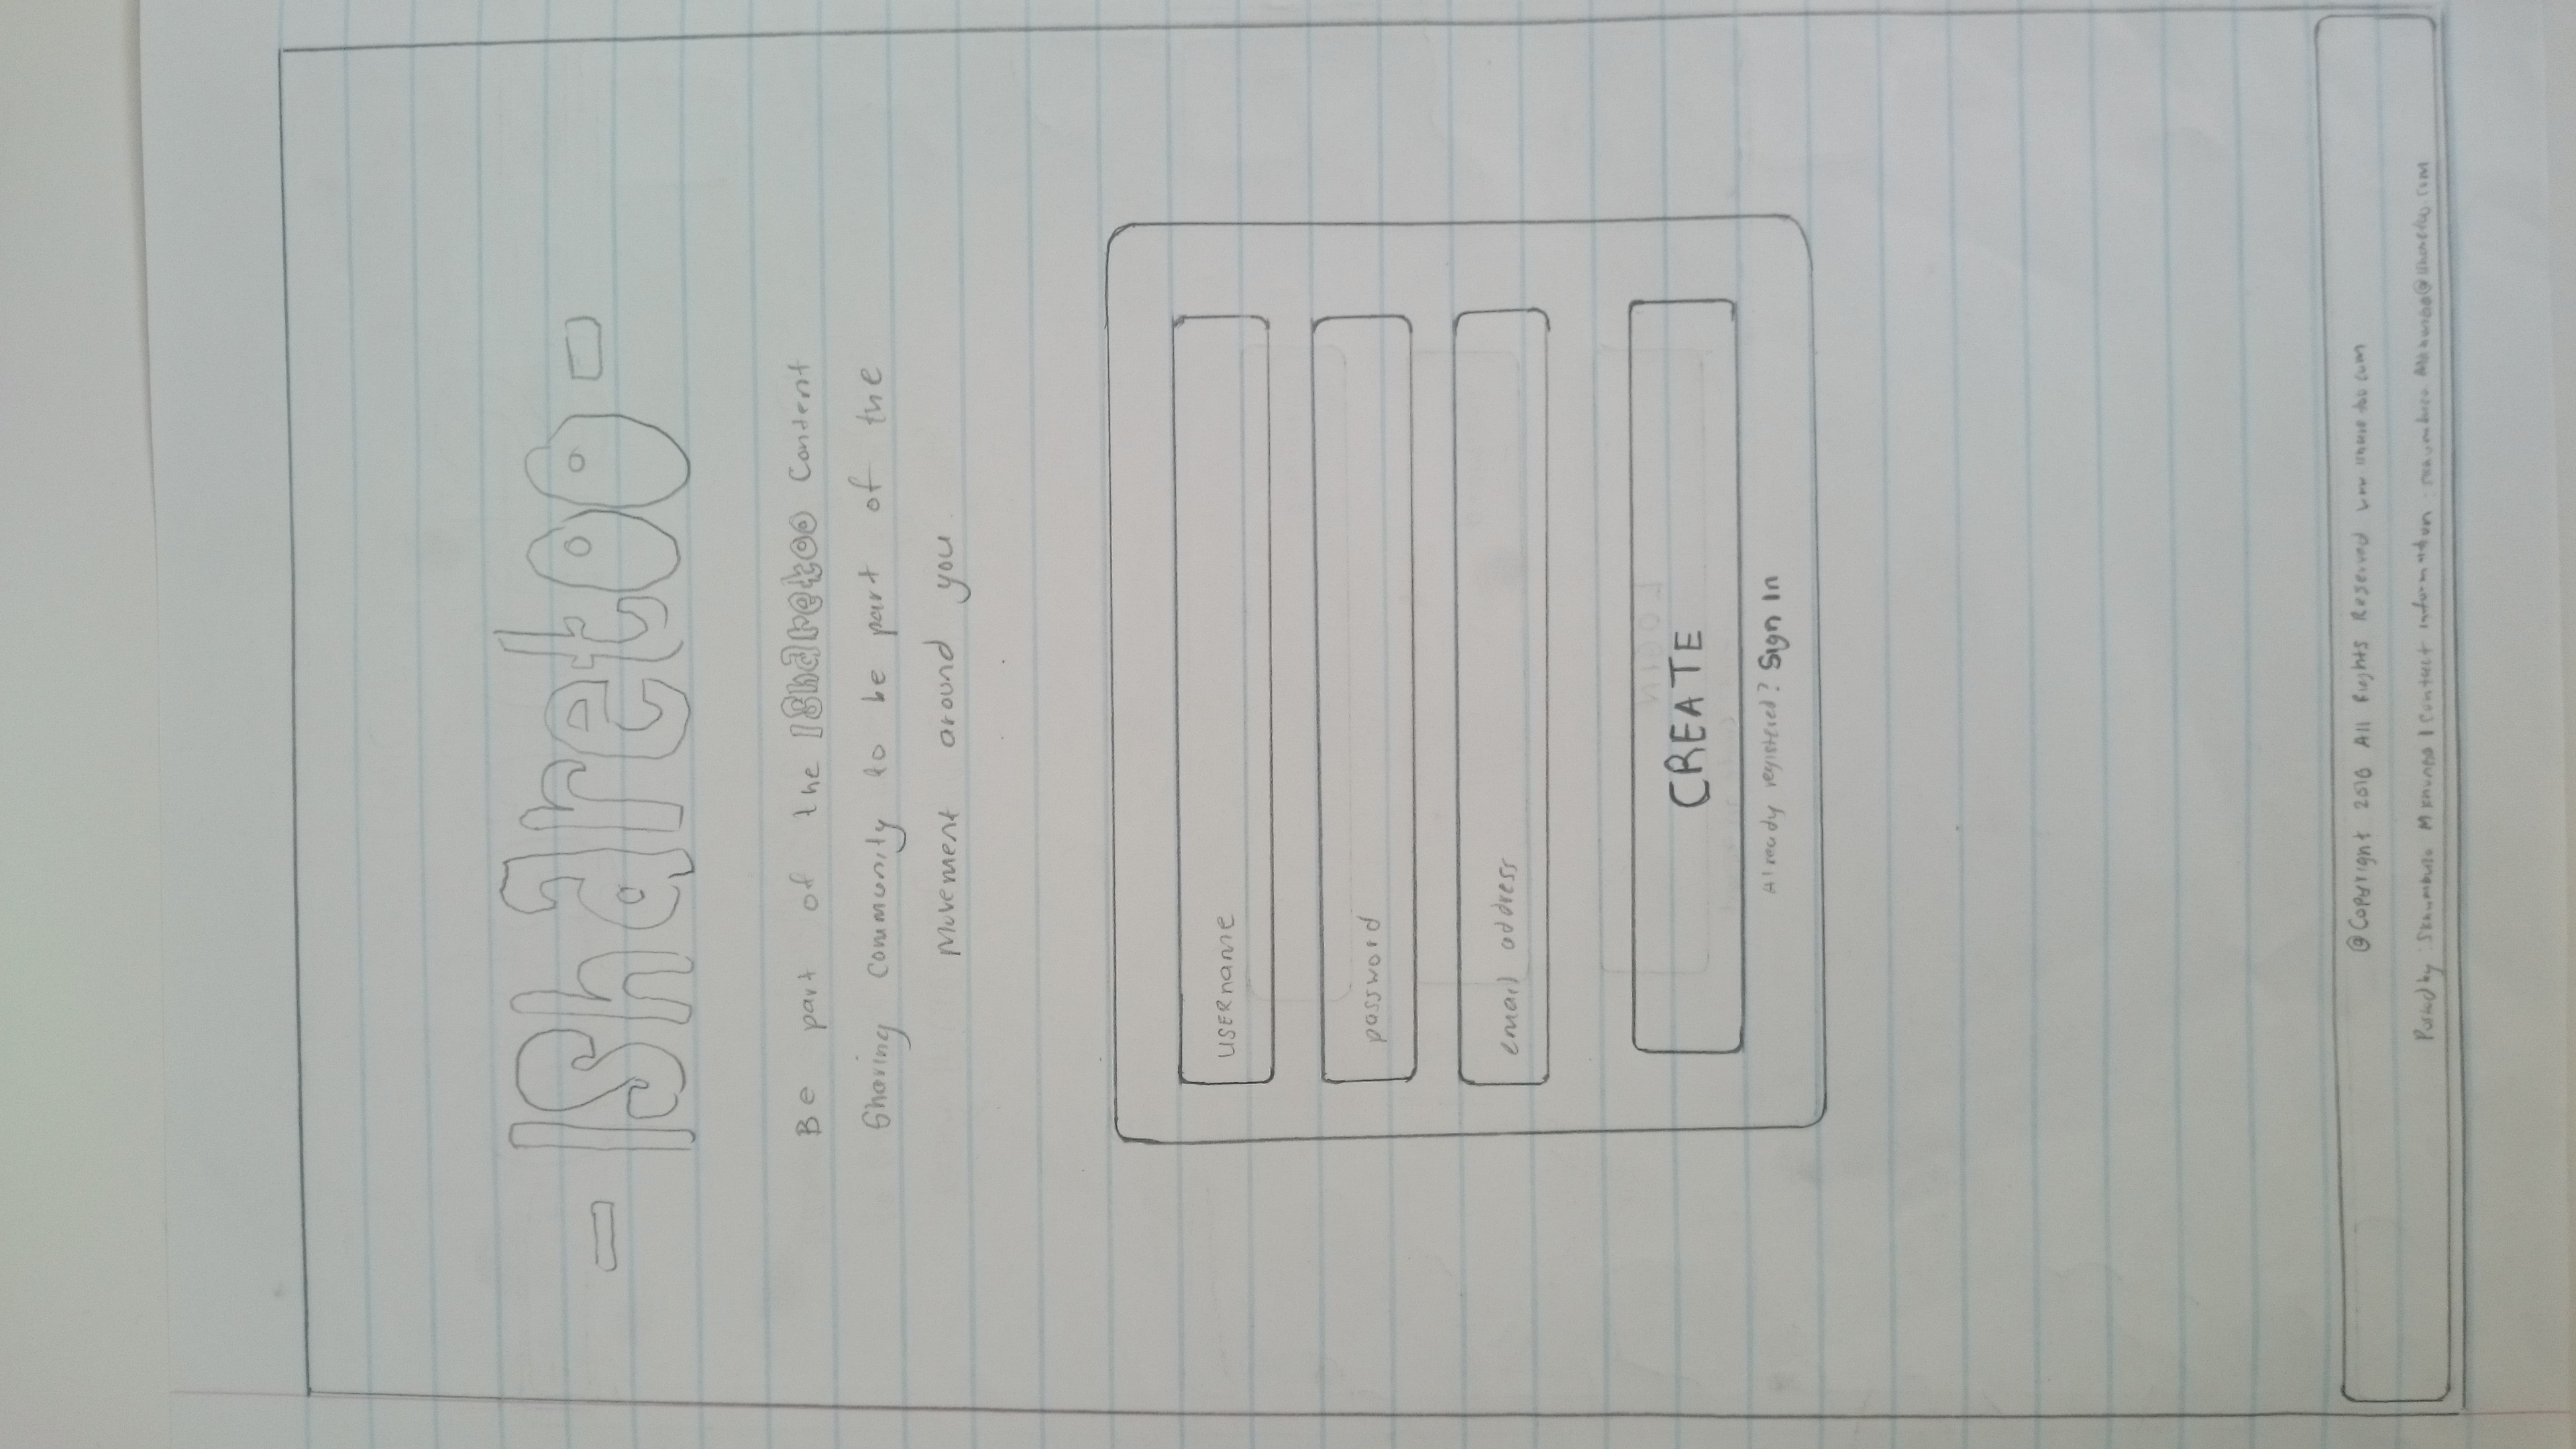 - ISharetoo -
Be part of the ISharetoo Content
Sharing Community to be part of the
Movement around you
username
password
email address
CREATE
Already registered? Sign In
@Copyright 2016 All Rights Reserved
Posted by : | Contact information